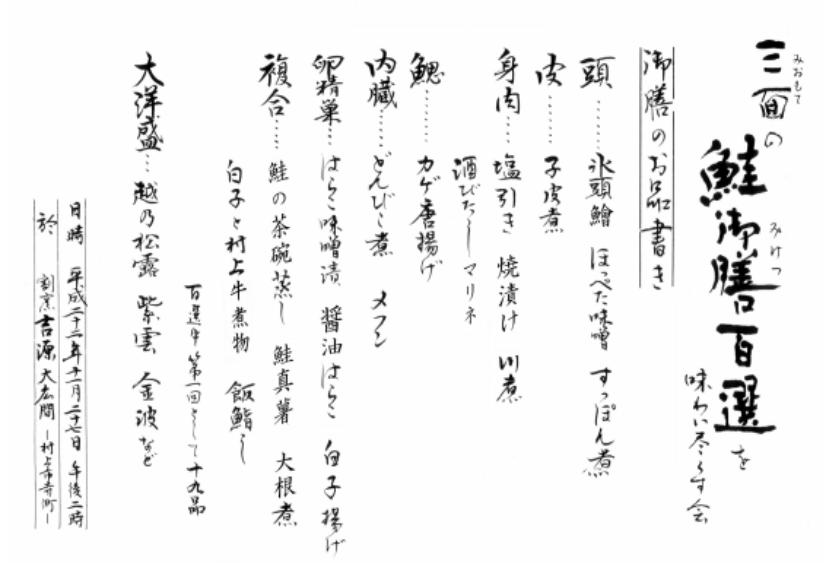 三面の
みおもて
鮭御膳百選を
みけつ
味わい尽くす会
御膳のお品書き
頭……氷頭鱠 ほっぺた味噌 すっぽん煮
皮……子皮煮
身肉…塩引き 焼漬け 川煮
酒びたし マリネ
鰓……カゲ唐揚げ
内臓……どんびこ煮 メフン
卵精巣…はらこ味噌漬 醤油はらこ 白子揚げ
複合……鮭の茶碗蒸し 鮭真薯 大根煮
白子と村上牛煮物 飯鮨し
百選中第一回として十九品
大洋盛…越乃松露 紫雲 金波など
日時 平成二十二年十一月二十七日 午後二時
於 割烹吉源 大広間 ー村上市寺町ー